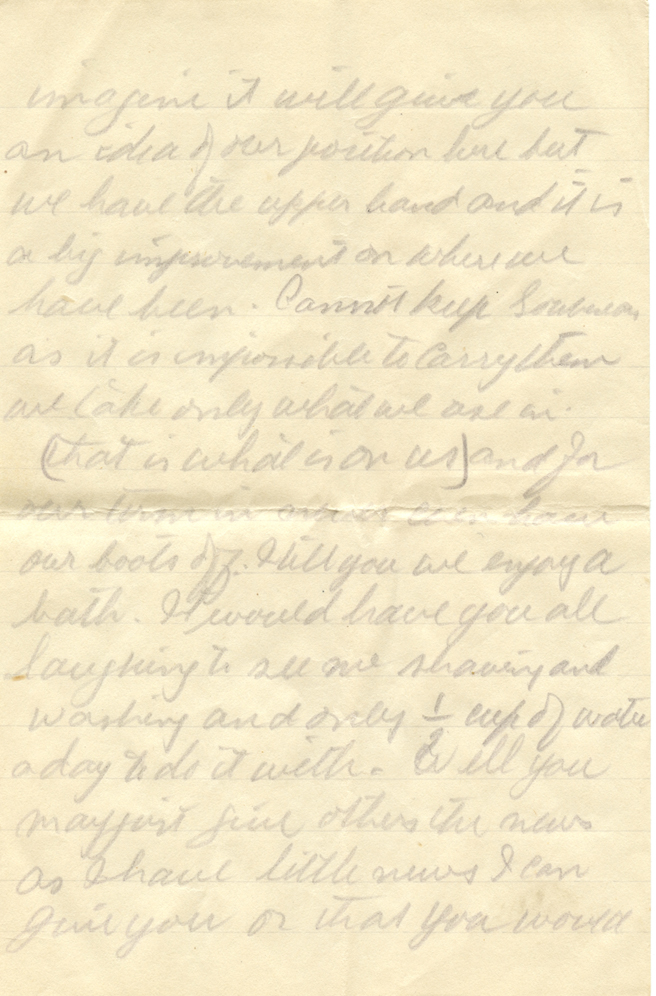 imagine it will give you
an idea of our position here but
we have the upper hand and it is
a big improvement on where we
have been. Cannot keep Souvenirs
as it is impossible to carry them
we take only what we use in.
(that is what is on us) and for
our turn in never even have
our boots off. I tell you we enjoy a
bath. It would have you all
laughing to see me shaving and
washing and only 1/2 cup of water
a day to do it with. Well you
may just give others the news
as I have little news I can
give you or that you would